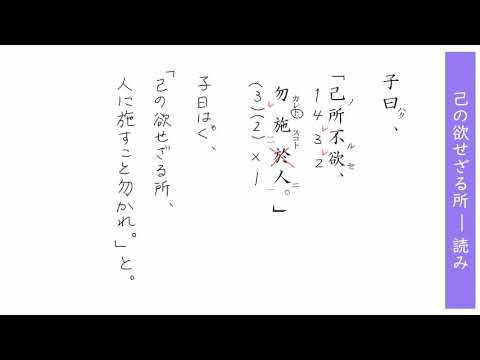 己の欲せざる所 ー 読み
子曰、
ハク
「己所不欲、
ノ ル セ
レ レ
1 4 3 2
勿施於人。」
カレト スコト ニ
レ 二 一
(3)(2)×1
子曰はく、
「己の欲せざる所、
人に施すこと勿かれ。」と。